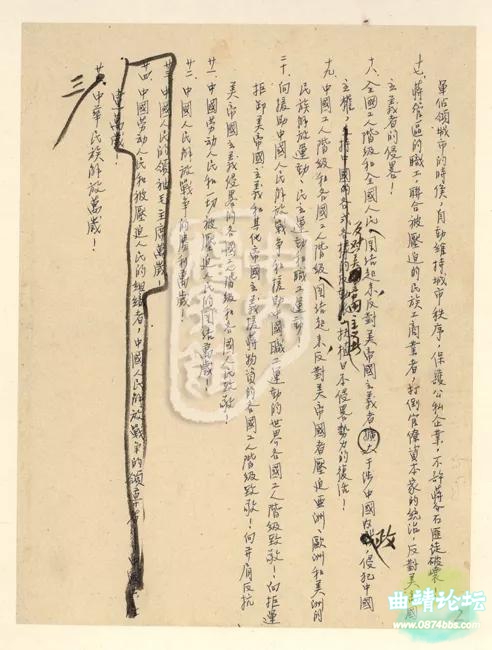 軍佔領城市的時候，自動維持城市秩序，保護公私企業，不許蔣介石匪徒破壞
十七、蔣管區的職工，聯合被壓迫的民族工商業者，打倒官僚資本家的統治，反對美帝國
主義者的侵畧！
十八、全國工人階級和全國人民團結起來反對美帝國主義者干涉中國內政，侵犯中國
主權，反對美帝國主義扶植日本侵畧勢力的復活！
十九、中國工人階級和各國工人階級團結起來，反對美帝國者壓迫亞洲、歐洲和美洲的
民族解放運動，民主運動和職工運動！
二十、向援助中國人民解放戰爭和援助中國職工運動的世界各國工人階級致敬！向拒運
拒卸美帝國主義和其他帝國主義援蔣物資的各國工人階級致敬！向并肩反抗
美帝國主義侵畧的各國工人階級和各國人民致敬！
廿一、中國勞動人民和一切被壓迫人民的團結萬歲！
廿二、中國人民解放戰爭的勝利萬歲！
廿三、中國人民的領袖毛主席萬歲！
廿四、中國勞動人民和被壓迫人民的組織者，中國人民解放戰爭的領導者
萬歲！
中華民族解放萬歲！
三
曲靖论坛
www.0874bbs.com